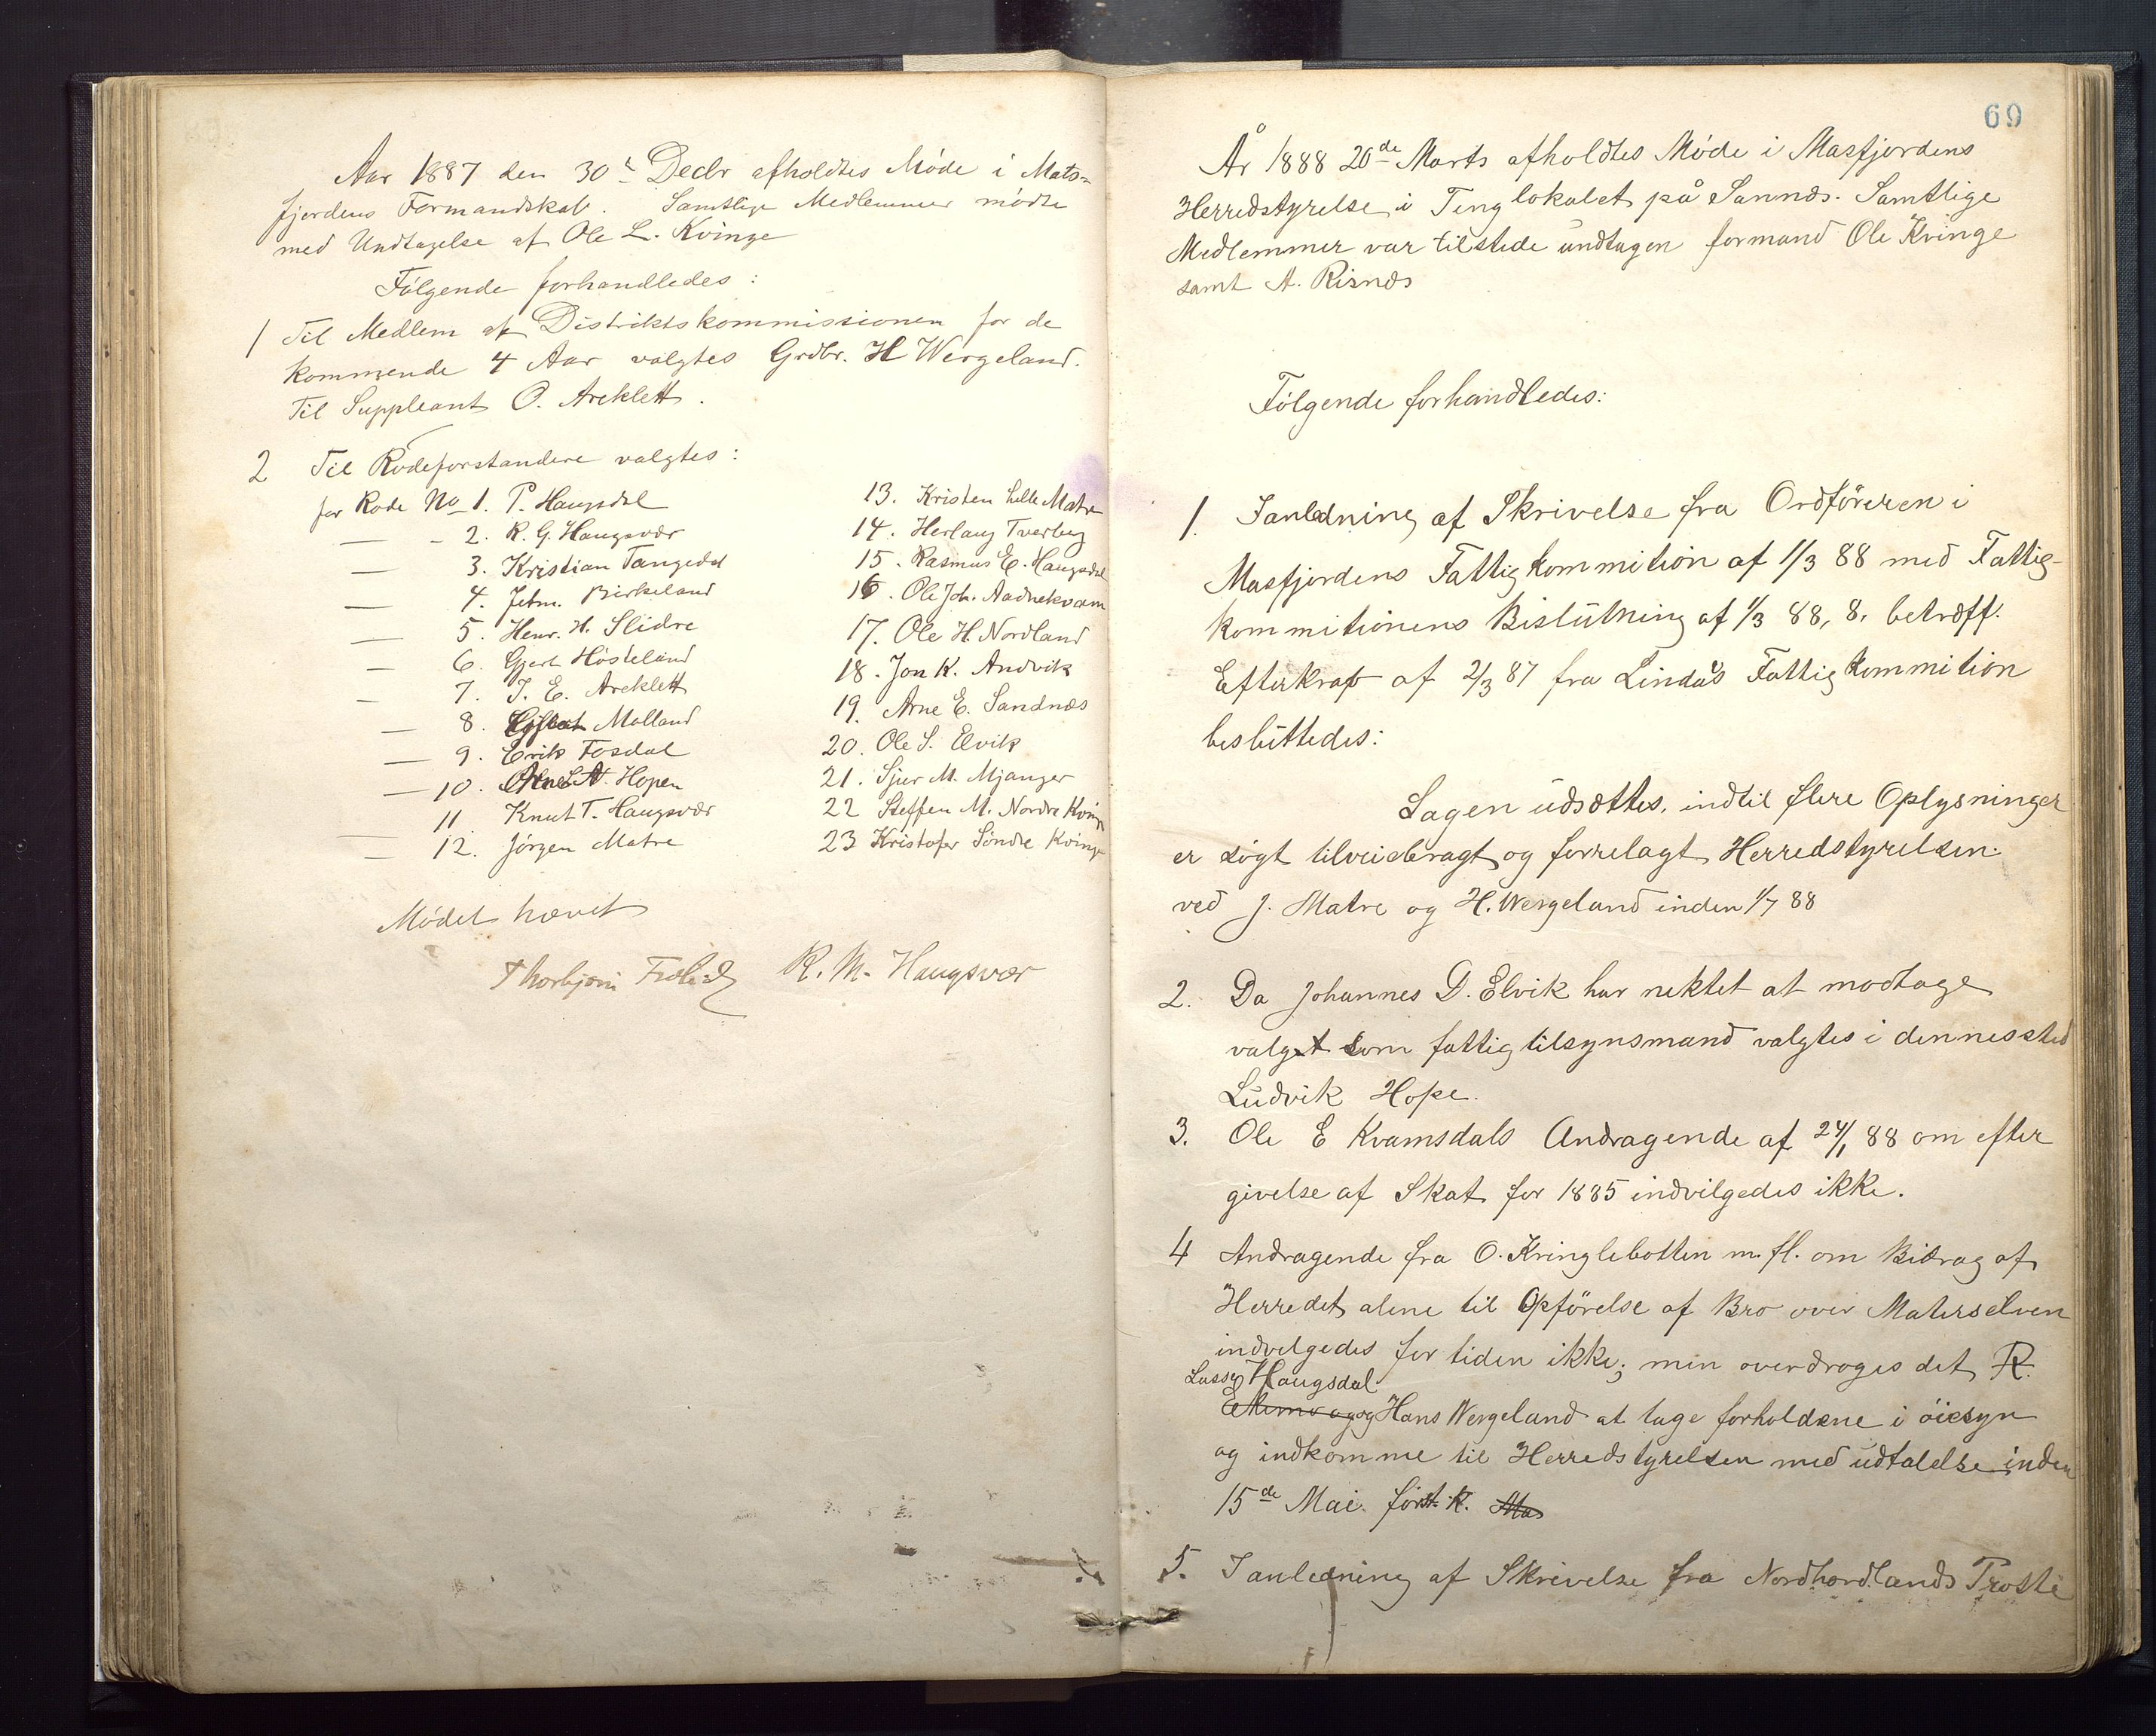 Aar 1887 den 30t Decbr afholdtes Møde i Mats-
fjordens Formandskab. Samtlige Medlemmer mødte
med Undtagelse af Ole L. Kvinge
Følgende forhandledes:
1 Til Medlem af Distriktskommissionen for de
kommende 4 Aar valgtes Grdbr. H Wergeland.
Til Suppleant O. Areklett.
2 Til Rodeforstandere valgtes:
for Rode No 1. P. Haugsdal
— - 2. R. G. Haugsvær
— 3. Kristian Tangedal
— 4. Birkeland
— 5. Henr. H. Slidre
— 6. Gjert Høsteland
— 7. I. E. Areklett
— 8. Molland
— 9. Erik Fosdal
— 10. Hopen
11 Knut T. Haugsvær
— 12. Jørgen Matre
13. Kristen Lille Matre
14. Herlaug Tverberg
15. Rasmus E. Haugsdal
16. Ole Joh. Aadnekvam
17. Ole H. Nordland
18. Jon K. Andvik
19. Arne E. Sandnæs
20. Ole S. Elvik
21. Sjur M. Mjanger
22 Steffen M. Nordre Kvinge
23 Kristofer Søndre Kvinge
Mødet hævet
R. M. Haugsvær
69
År 1888 20de Marts afholdtes Møde i Masfjordens
Herredstyrelse i Tinglokalet på Sannæs. Samtlige
Medlemmer var tilstede undtagen formand Ole Kvinge
samt A. Risnæs
Følgende forhandledes:
1. Ianledning af Skrivelse fra Ordføreren i
Masfjordens Fattigkommition af 1/3 88 med Fattig-
kommitionens Beslutning af 1/3 88, 8. betræff.
Efterkrav af 2/3 87 fra Lindås Fattigkommition
besluttedes:
Sagen udsættes, indtil flere Oplysninger
er søgt tilveiebragt og forrelagt Herredstyrelsen
ved J. Matre og H. Wergeland inden 1/7 88
2. Da Johannes D. Elvik har nektet at modtage
valget som fattigtilsynsmand valgtes i dennessted
Ludvik Hope.
3. Ole E Kvamsdals Andragende af 24/1 88 om efter
givelse af Skat for 1885 indvilgedes ikke.
4 Andragende fra O. Kringlebotten m. fl. om Bidrag af
Herredet alene til Opførelse af Bro over Materselven
indvelgedes for tiden ikke; men overdroges det R.
Lasse Haugsdal
og Hans Wergeland at tage forholdene i øiesyn
og indkomme til Herredstyrelsen med udtalelse inden
15de Mai først. k. Ma
5. Ianledning af Skrivelse fra Nordhordlands Prosti